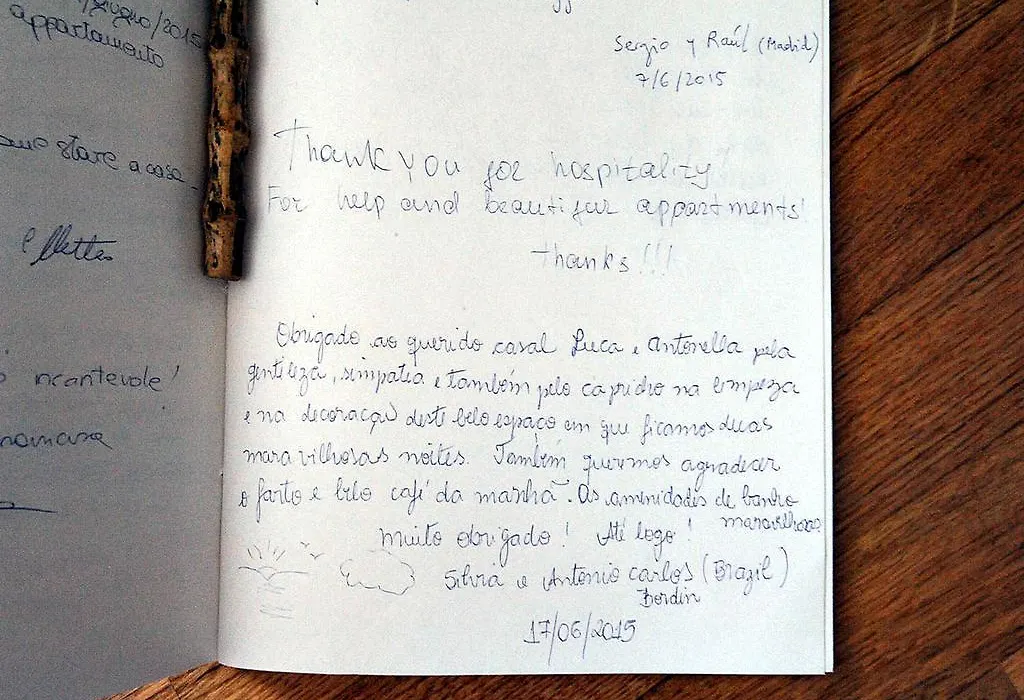 /giugno/2015
appartamento
stare a casa.
incantevole!
Sergio y Raúl (Madrid)
7/6/2015
Thank you for hospitality!
For help and beautifur appartments!
thanks!!!
Obrigado ao querido casal Luca e Antonella pela
gentileza, simpatia e também pelo capricho na limpeza
e na decoração deste belo espaço em que ficamos duas
maravilhosas noites. Também queremos agradecer
o farto e belo café da manhã. As amenidades de banho
maravilhosas
muito obrigado! Até logo!
Silvia e Antonio Carlos (Brazil)
Bordin
17/06/2015